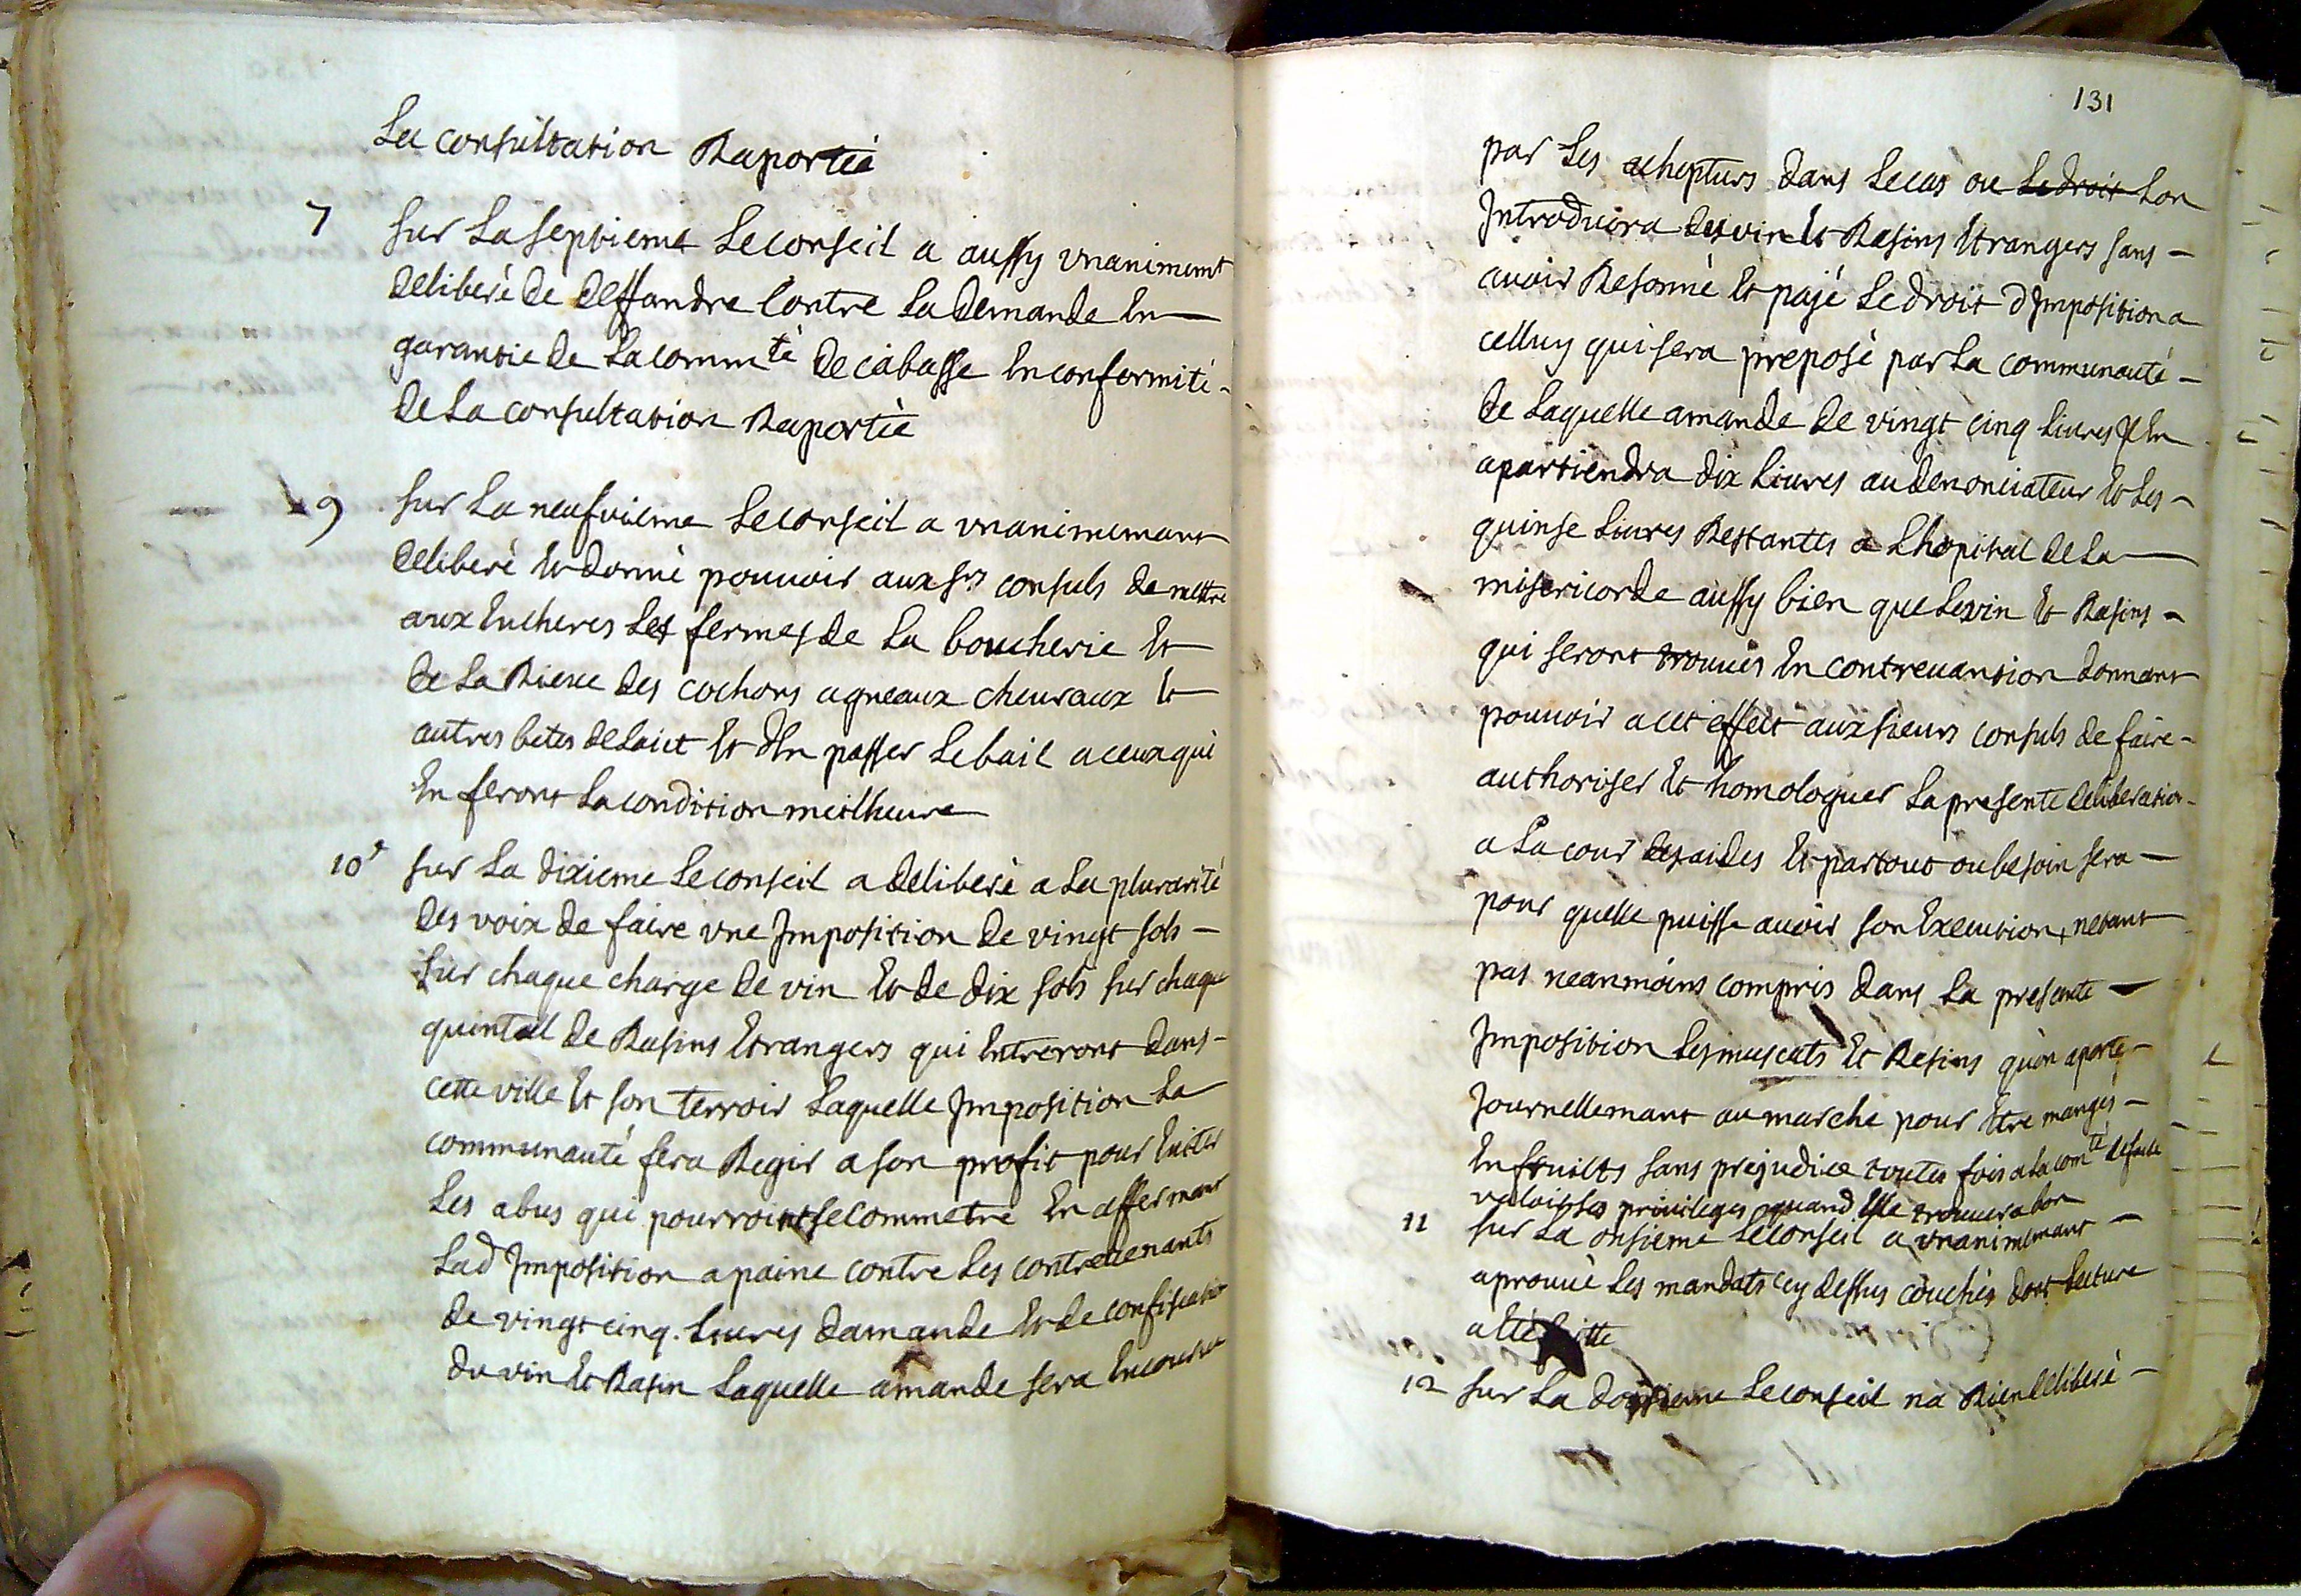 La consultation Raportèe
7 sur La septieme Le conseil a aussy vnanimemt
deliberè de deffandre Contre La demande En
garantie de La commté de cabasse En conformité
de La consultation Raportèe
9 sur La neufvieme Le conseil a vnanimemant
deliberè Et donnè pouuoir aux srs consuls de mettre
aux Encheres Les fermes de La boucherie Et
de La Rieue des cochons agneaux cheuraux Et
autres betes de Laict Et d'En passer Le bail a ceux qui
En feront La condition meilheure
10e sur La dixieme Le conseil a deliberè a La plurarité
des voix de faire vne Imposition de vingt sols
sur chaque charge de vin Et de dix sols sur chaque
quintal de Rasins Etrangers qui Entreront dans
cette ville Et son terroir Laquelle Imposition La
communauté fera Regir a son profit pour Euiter
Les abus qui pourroint se commetre En affermant
Lad Imposition a paine contre Les contreuenants
de vingt cinq Liures damande Et de confiscation
du vin Et Rasin Laquelle amande sera Encourue
131
par Les achepturs dans Le cas ou Le droit Lon
Introduira des vin Et Rasins Etrangers sans
auoir Resonné Et pajé Le droit d Imposition a
celluy qui sera preposè par La communauté
de Laquelle amande de vingt cinq Liures Il En
apartiendra dix Liures au denonciateur Et Les
quinse Liures Restantes a Lhopital de La
misericorde aussy bien que Le vin Et Rasins
qui seront trouués En contreuantion donnant
pouuoir a cet effect aux sieurs consuls de faire
authoriser Et homologuer La presente deliberation
a La cour des aides Et partout ou besoin sera
pour quelle puisse auoir son Execution, netant
pas neanmoins compris dans La presante
Imposition Les muscats Et Resins qu'on aporte
Journellemant au marche pour Etre mangés
En fruilts sans prejudice toutes fois a La comté de faire
valoir ses priuileges quand Elle trouuera bon
11 sur La onsieme Le conseil a vnanimemant
aprouuè Les mandats cy dessus couchés dont Lecture
a Eté faitte
12 sur La dousieme Le conseil na Rien deliberè